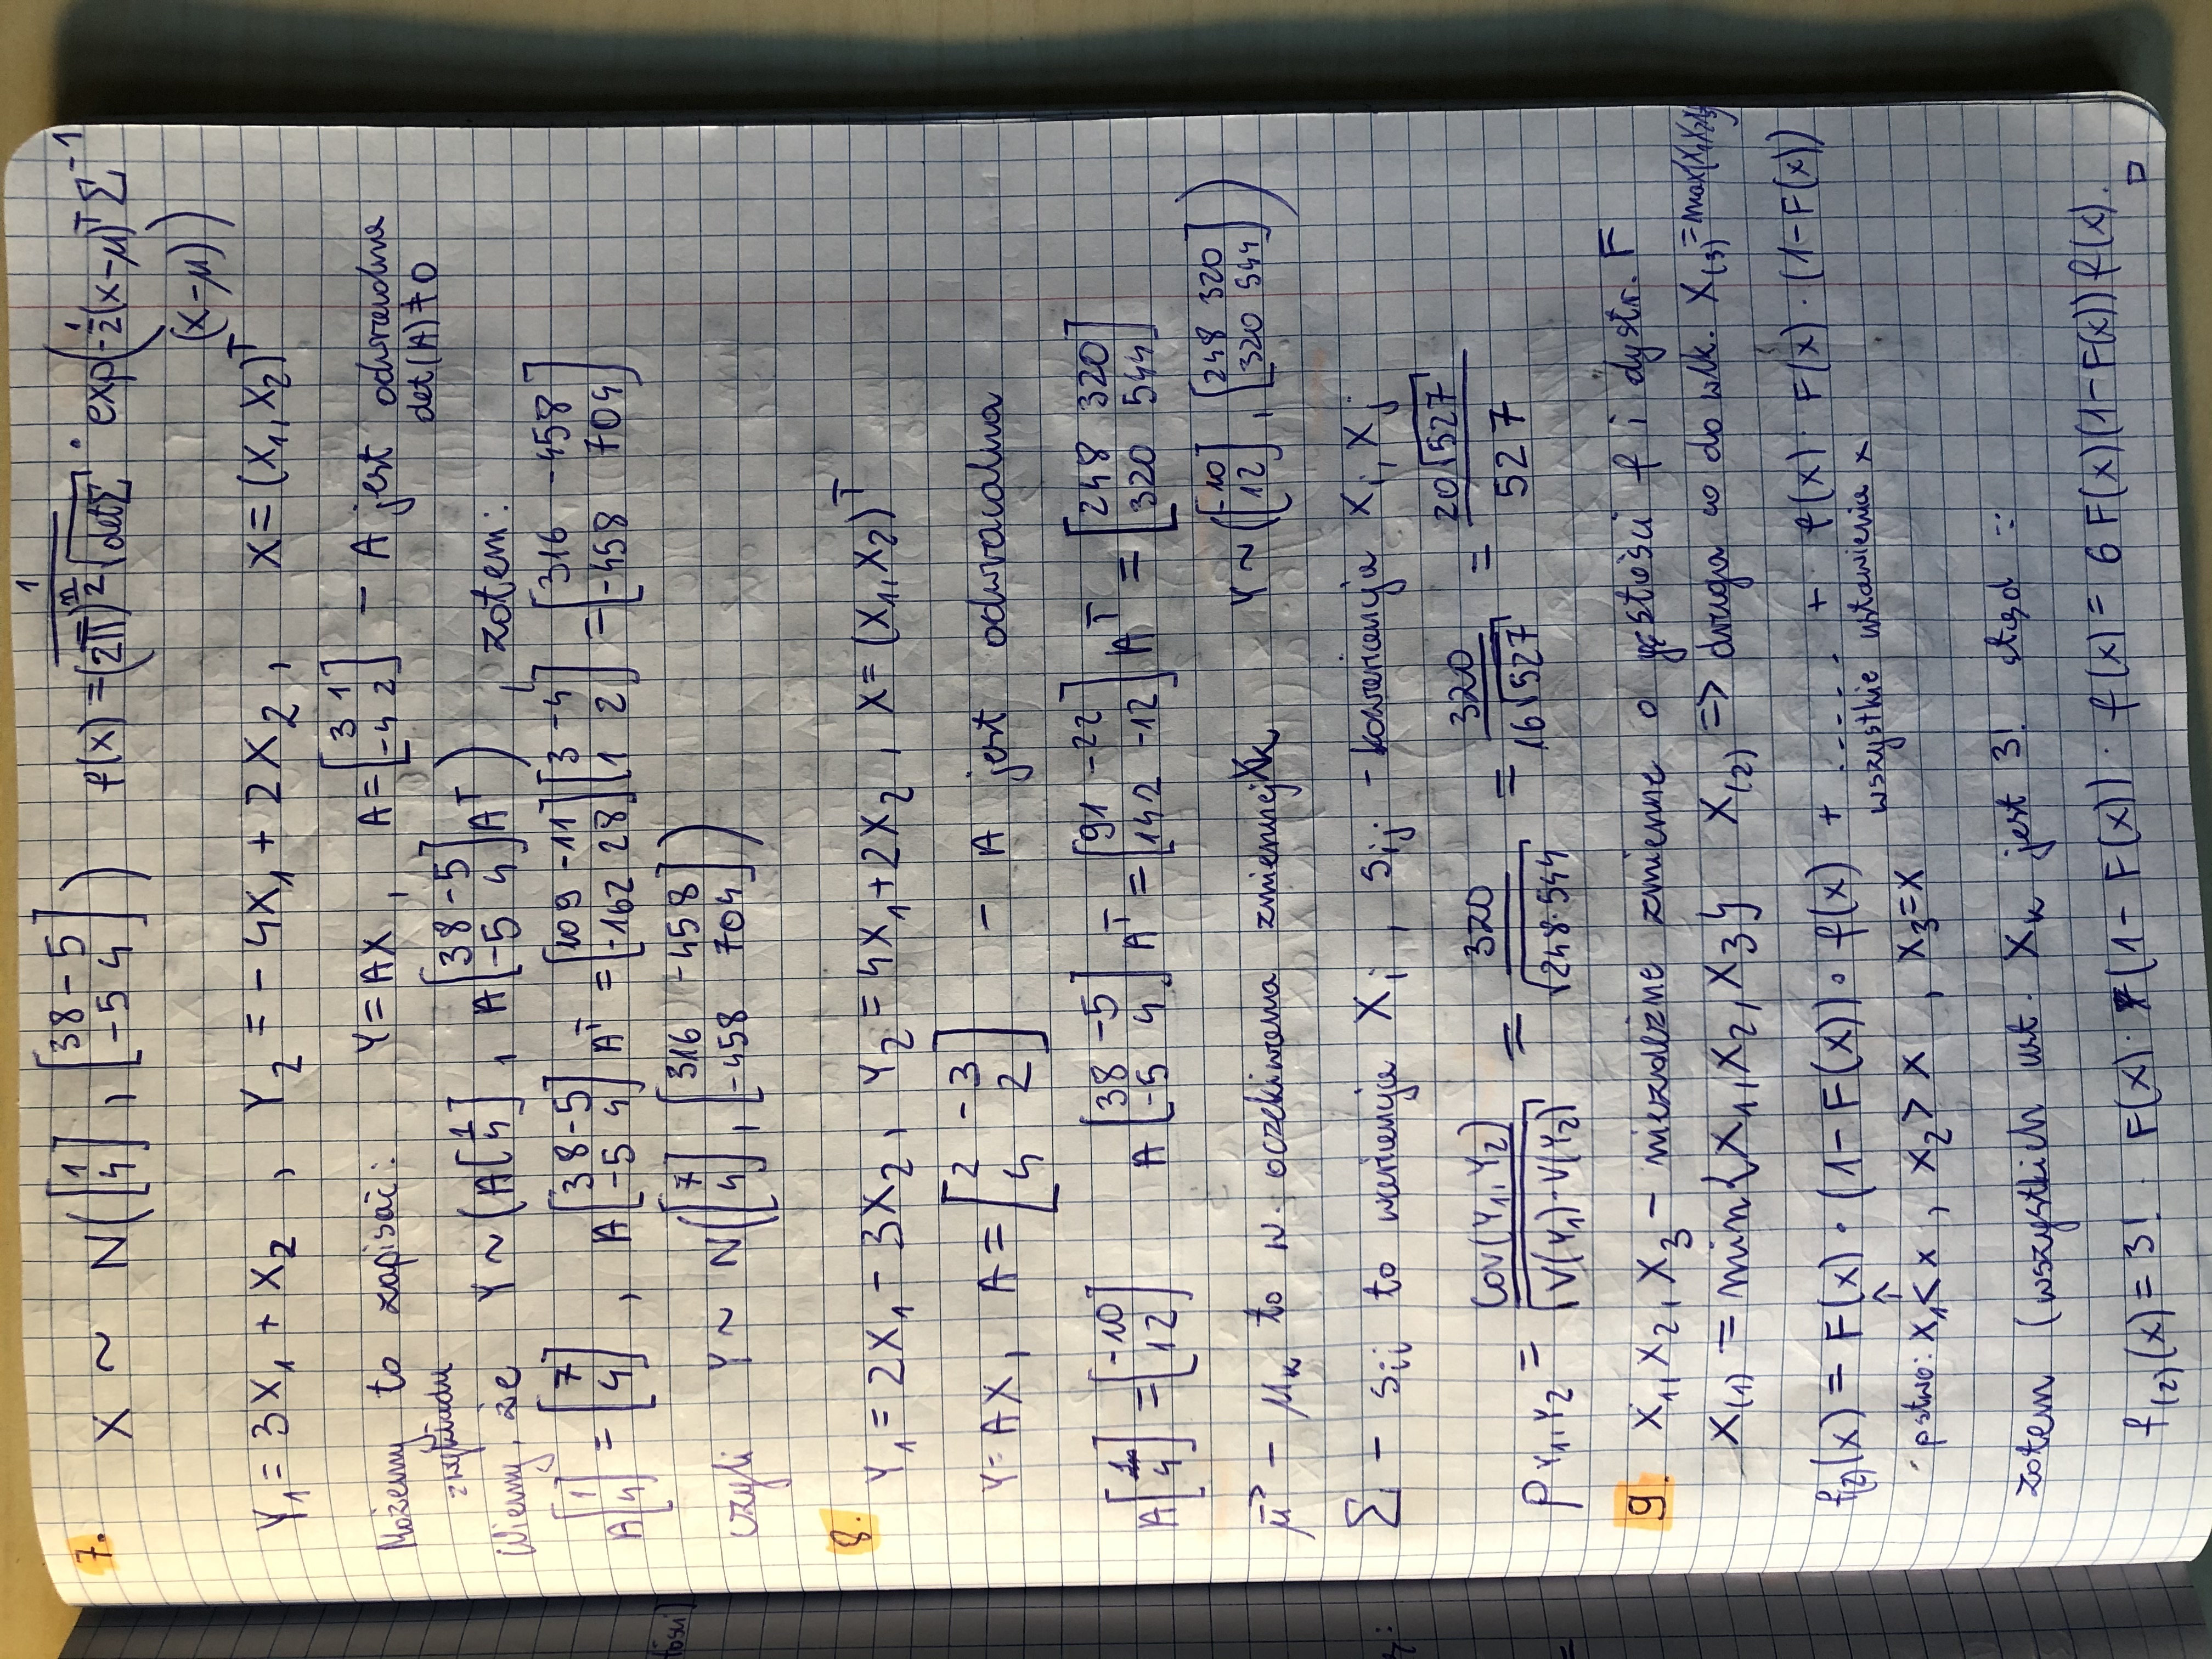 7. X ~ N([1 4], [38 -5 -5 4]) f(x) = 1/((2π)^(n/2) √detΣ) · exp(-1/2 (x-μ)^T Σ^-1
(x-μ))
Y₁ = 3X₁ + X₂ , Y₂ = -4X₁ + 2X₂ , X = (X₁, X₂)^T
Możemy to zapisać: Y = AX , A = [3 1 -4 2] - A jest odwracalna
det(A) ≠ 0
z wykładu
Wiemy, że Y ~ (A[1 4], A[38 -5 -5 4]A^T) , zatem:
A[1 4] = [7 4] , A[38 -5 -5 4]A^T = [109 -11 -162 28][3 -4 1 2] = [316 -458 -458 704]
czyli Y ~ N([7 4], [316 -458 -458 704])
8. Y₁ = 2X₁ - 3X₂ , Y₂ = 4X₁ + 2X₂ , X = (X₁, X₂)^T
Y = AX , A = [2 -3 4 2] - A jest odwracalna
A[1 4] = [-10 12] A[38 -5 -5 4]A^T = [91 -22 142 -12]A^T = [248 320 320 544]
μ⃗ - μₖ to w. oczekiwana zmiennej Xₖ Y ~ ([-10 12], [248 320 320 544])
Σ - sᵢᵢ to wariancja Xᵢ , sᵢⱼ - kowariancja Xᵢ, Xⱼ
ρ Y₁,Y₂ = Cov(Y₁, Y₂)/√(V(Y₁)·V(Y₂)) = 320/√(248·544) = 320/(16√527) = 20√527/527
9. X₁, X₂, X₃ - niezależne zmienne o gęstości f i dystr. F
X₍₁₎ = min{X₁, X₂, X₃} X₍₂₎ => druga co do wlk. X₍₃₎ = max{X₁X₂X₃}
f₍₂₎(x) = F(x) · (1 - F(x)) · f(x) + ...... + f(x) · F(x) · (1 - F(x))
wszystkie ustawienia x
↑
pstwo: X₁ < x , X₂ > x , X₃ = x
zatem (wszystkich ust. Xₖ jest 3! stąd :
f₍₂₎(x) = 3! · F(x) · (1 - F(x)) · f(x) = 6 F(x)(1 - F(x)) f(x).
□